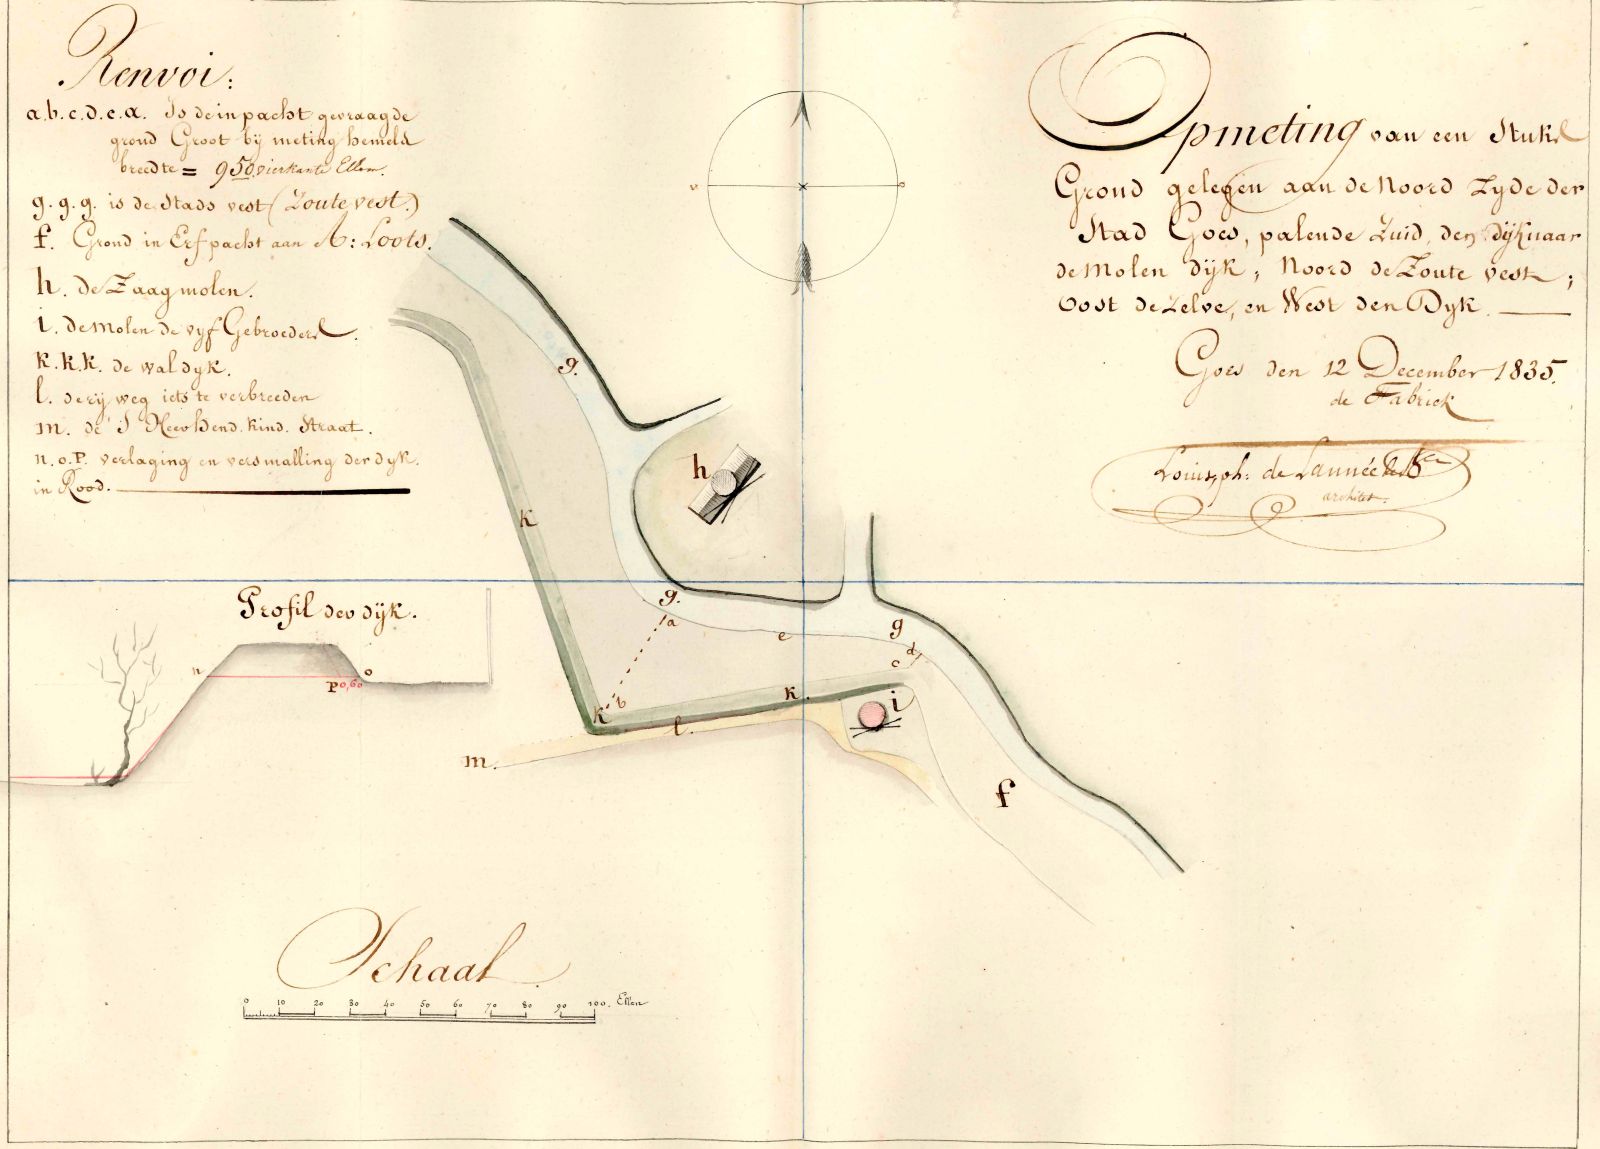 Renvoi:
a.b.c.d.e.a. Is de in pacht gevraagde
grond Groot bij meting hemels
breedte = 950 vierkante Ellen.
g. g. g. is de Stads vest (Zoute vest.)
f. Grond in Erfpacht aan A: Loots.
h. de Zaagmolen.
i. de molen de vyf Gebroeders.
k.k.k. de wal dyk.
l. de rij weg iets te verbreeden
m. de 'S Heer Hend. kind. Straat.
n.o.P. verlaging en versmalling der dyk.
in Rood.
Opmeting van een Stuk
Grond gelegen aan de Noord Zyde der
Stad Goes, palende Zuid, den dijk naar
de Molen dijk; Noord de Zoute vest;
Oost de Zelve, en West den Dyk.
Goes den 12 December 1835.
de Fabriek
Louis ph: de Lannée de
architect.
v o
g.
h
k
g.
a
e
g
d
c
b
k
k.
i
l.
m.
f
Profil der dijk.
n
o
P 0,60
Schaal.
0 10 20 30 40 50 60 70 80 90 100. Ellen